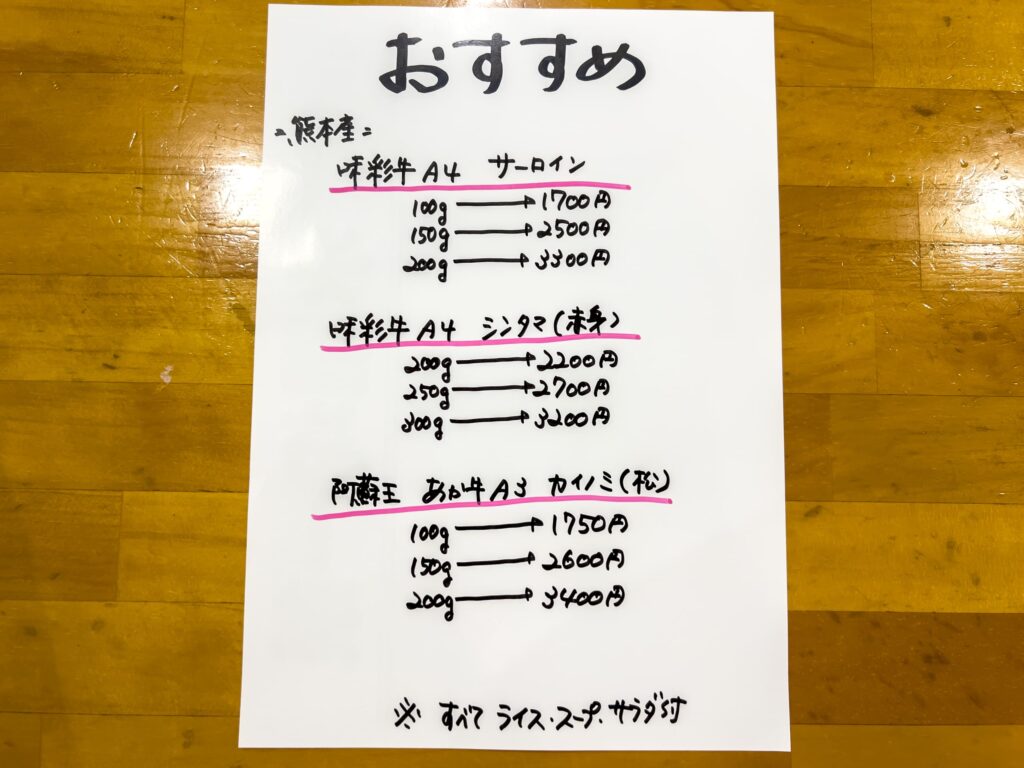 おすすめ
熊本産
味彩牛 A4 サーロイン
100g → 1700円
150g → 2500円
200g → 3300円
味彩牛 A4 シンタマ(赤身)
200g → 2200円
250g → 2700円
300g → 3200円
阿蘇王 あか牛 A3 カイノミ(松)
100g → 1750円
150g → 2600円
200g → 3400円
※ すべて ライス・スープ・サラダ付